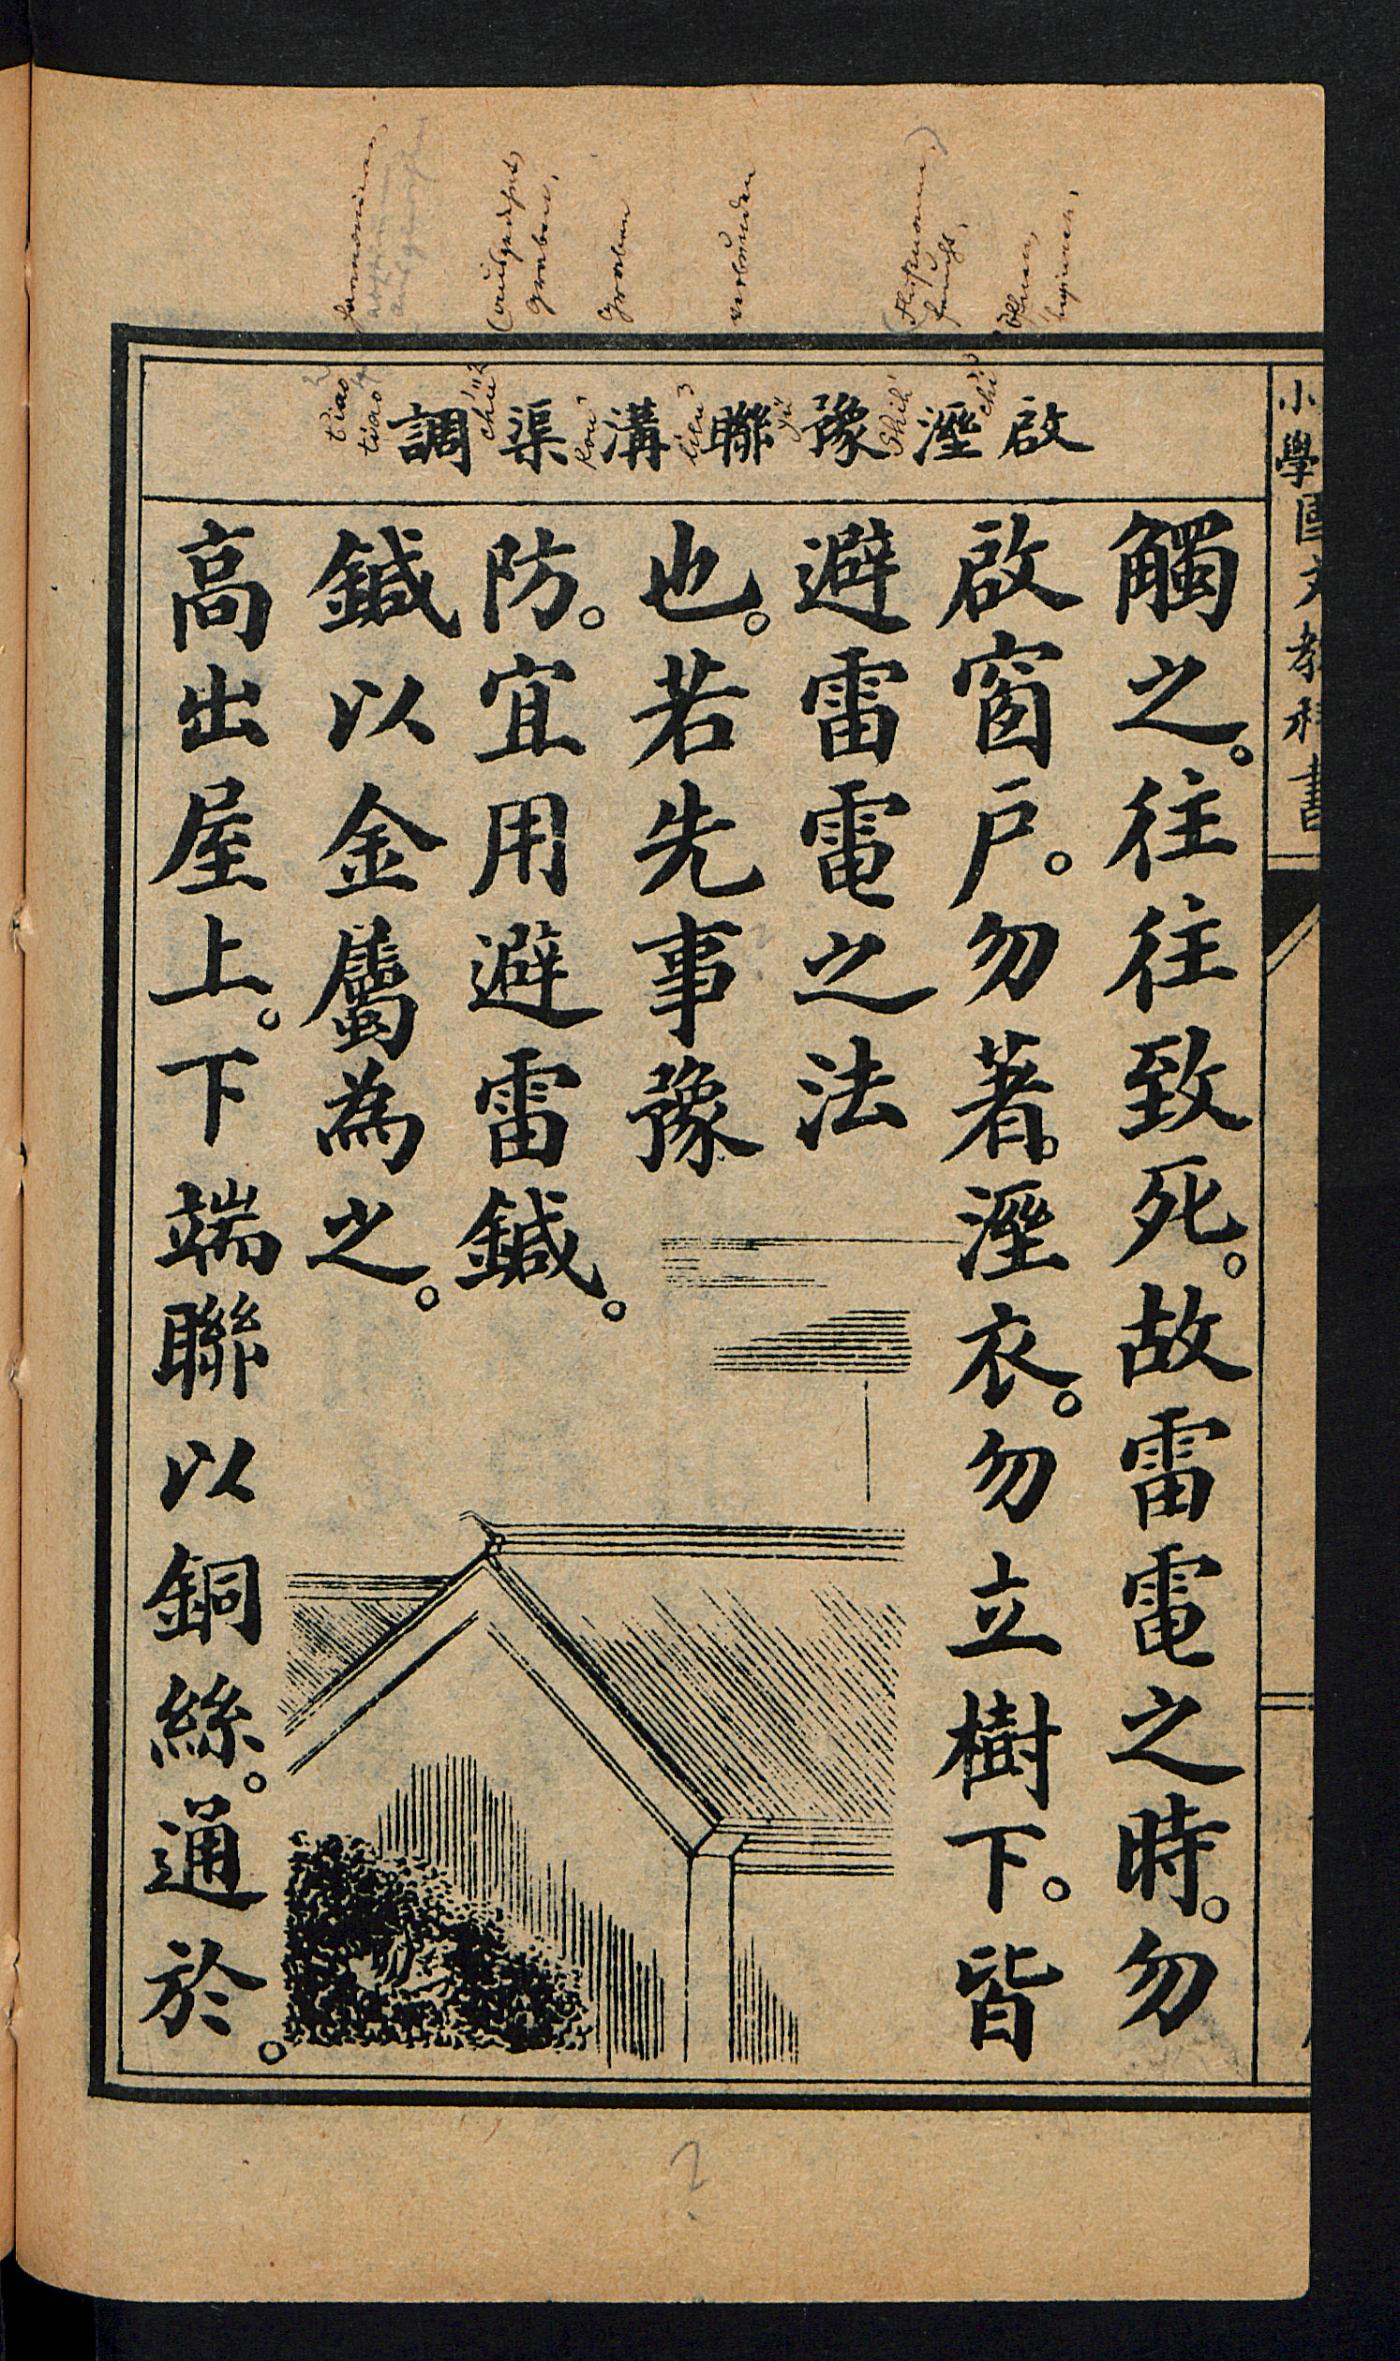 小學國文教科書
啟溼豫聯溝渠調
chi³
Shih¹
yü
lien³
Kou¹
chü²
tiao²
tiao⁴
verbunden
Graben
觸之。往往致死。故雷電之時。勿
啟窗戶。勿著。溼衣。勿立樹下。皆
避雷電之法
也。若先事豫
防。宜用避雷鍼。
鍼以金屬為之。
高出屋上。下端聯以銅絲。通於。
2